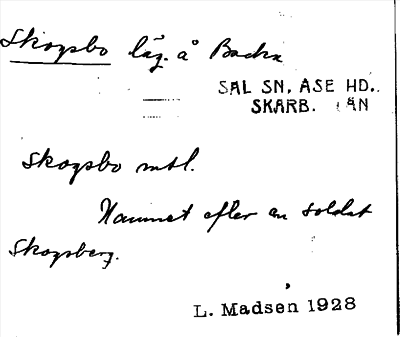 Skogsbo läg. å Backa
SAL SN, ASE HD..
SKARB. ÄN
Skogsbo mtl.
Namnet efter en soldat
Skogsberg.
L. Madsen 1928